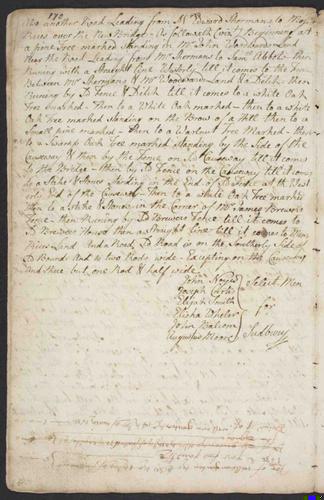 Also another Road Leading from Mr Edward Shermans to Majr
Rices over the New Bridge - As followeth (viz) Beginning at
a pine Tree marked Standing in Mr John Woodwards Land
Near the Road Leading from Mr Shermans to Saml Abbots - then
Running with a Straight Line Westerly till it comes to the
Between sd Shermans & Mr Woodwards Land & a Ditch then
Running by sd Fence & Ditch till it comes to a white Oak
Tree marked - then to a White Oak marked - then to a white
Oak Tree marked Standing on the Brow of a Hill then to a
Small pine marked - then to a Walnut Tree Marked - then
to a Swamp Oak Tree marked Standing by the Side of the
Causeway & then by the Fence on sd Causeway till it comes
to the Bridge - then by sd Fence on the Causeway till it comes
to a Stake & Stones Standing in the End of sd Fence at the West
erly End of the Causeway then to a white Oak Tree marked
then to a Stake & Stones in the Corner of Mr James Brewers
Fence - then Running by sd Brewers Fence till it comes to
sd Brewers House then a Straight Line till it comes to Majr
Rices Land And a Road, sd Road is on the Southerly Side of
sd Bounds And is two Rods wide - Excepting on the Causeway
And there but one Rod & half wide
John Noyes
Joseph Curtis
Elijah Smith
Elisha Wheler
John Balcom
Augustus Moore
Select Men
for
Sudbury